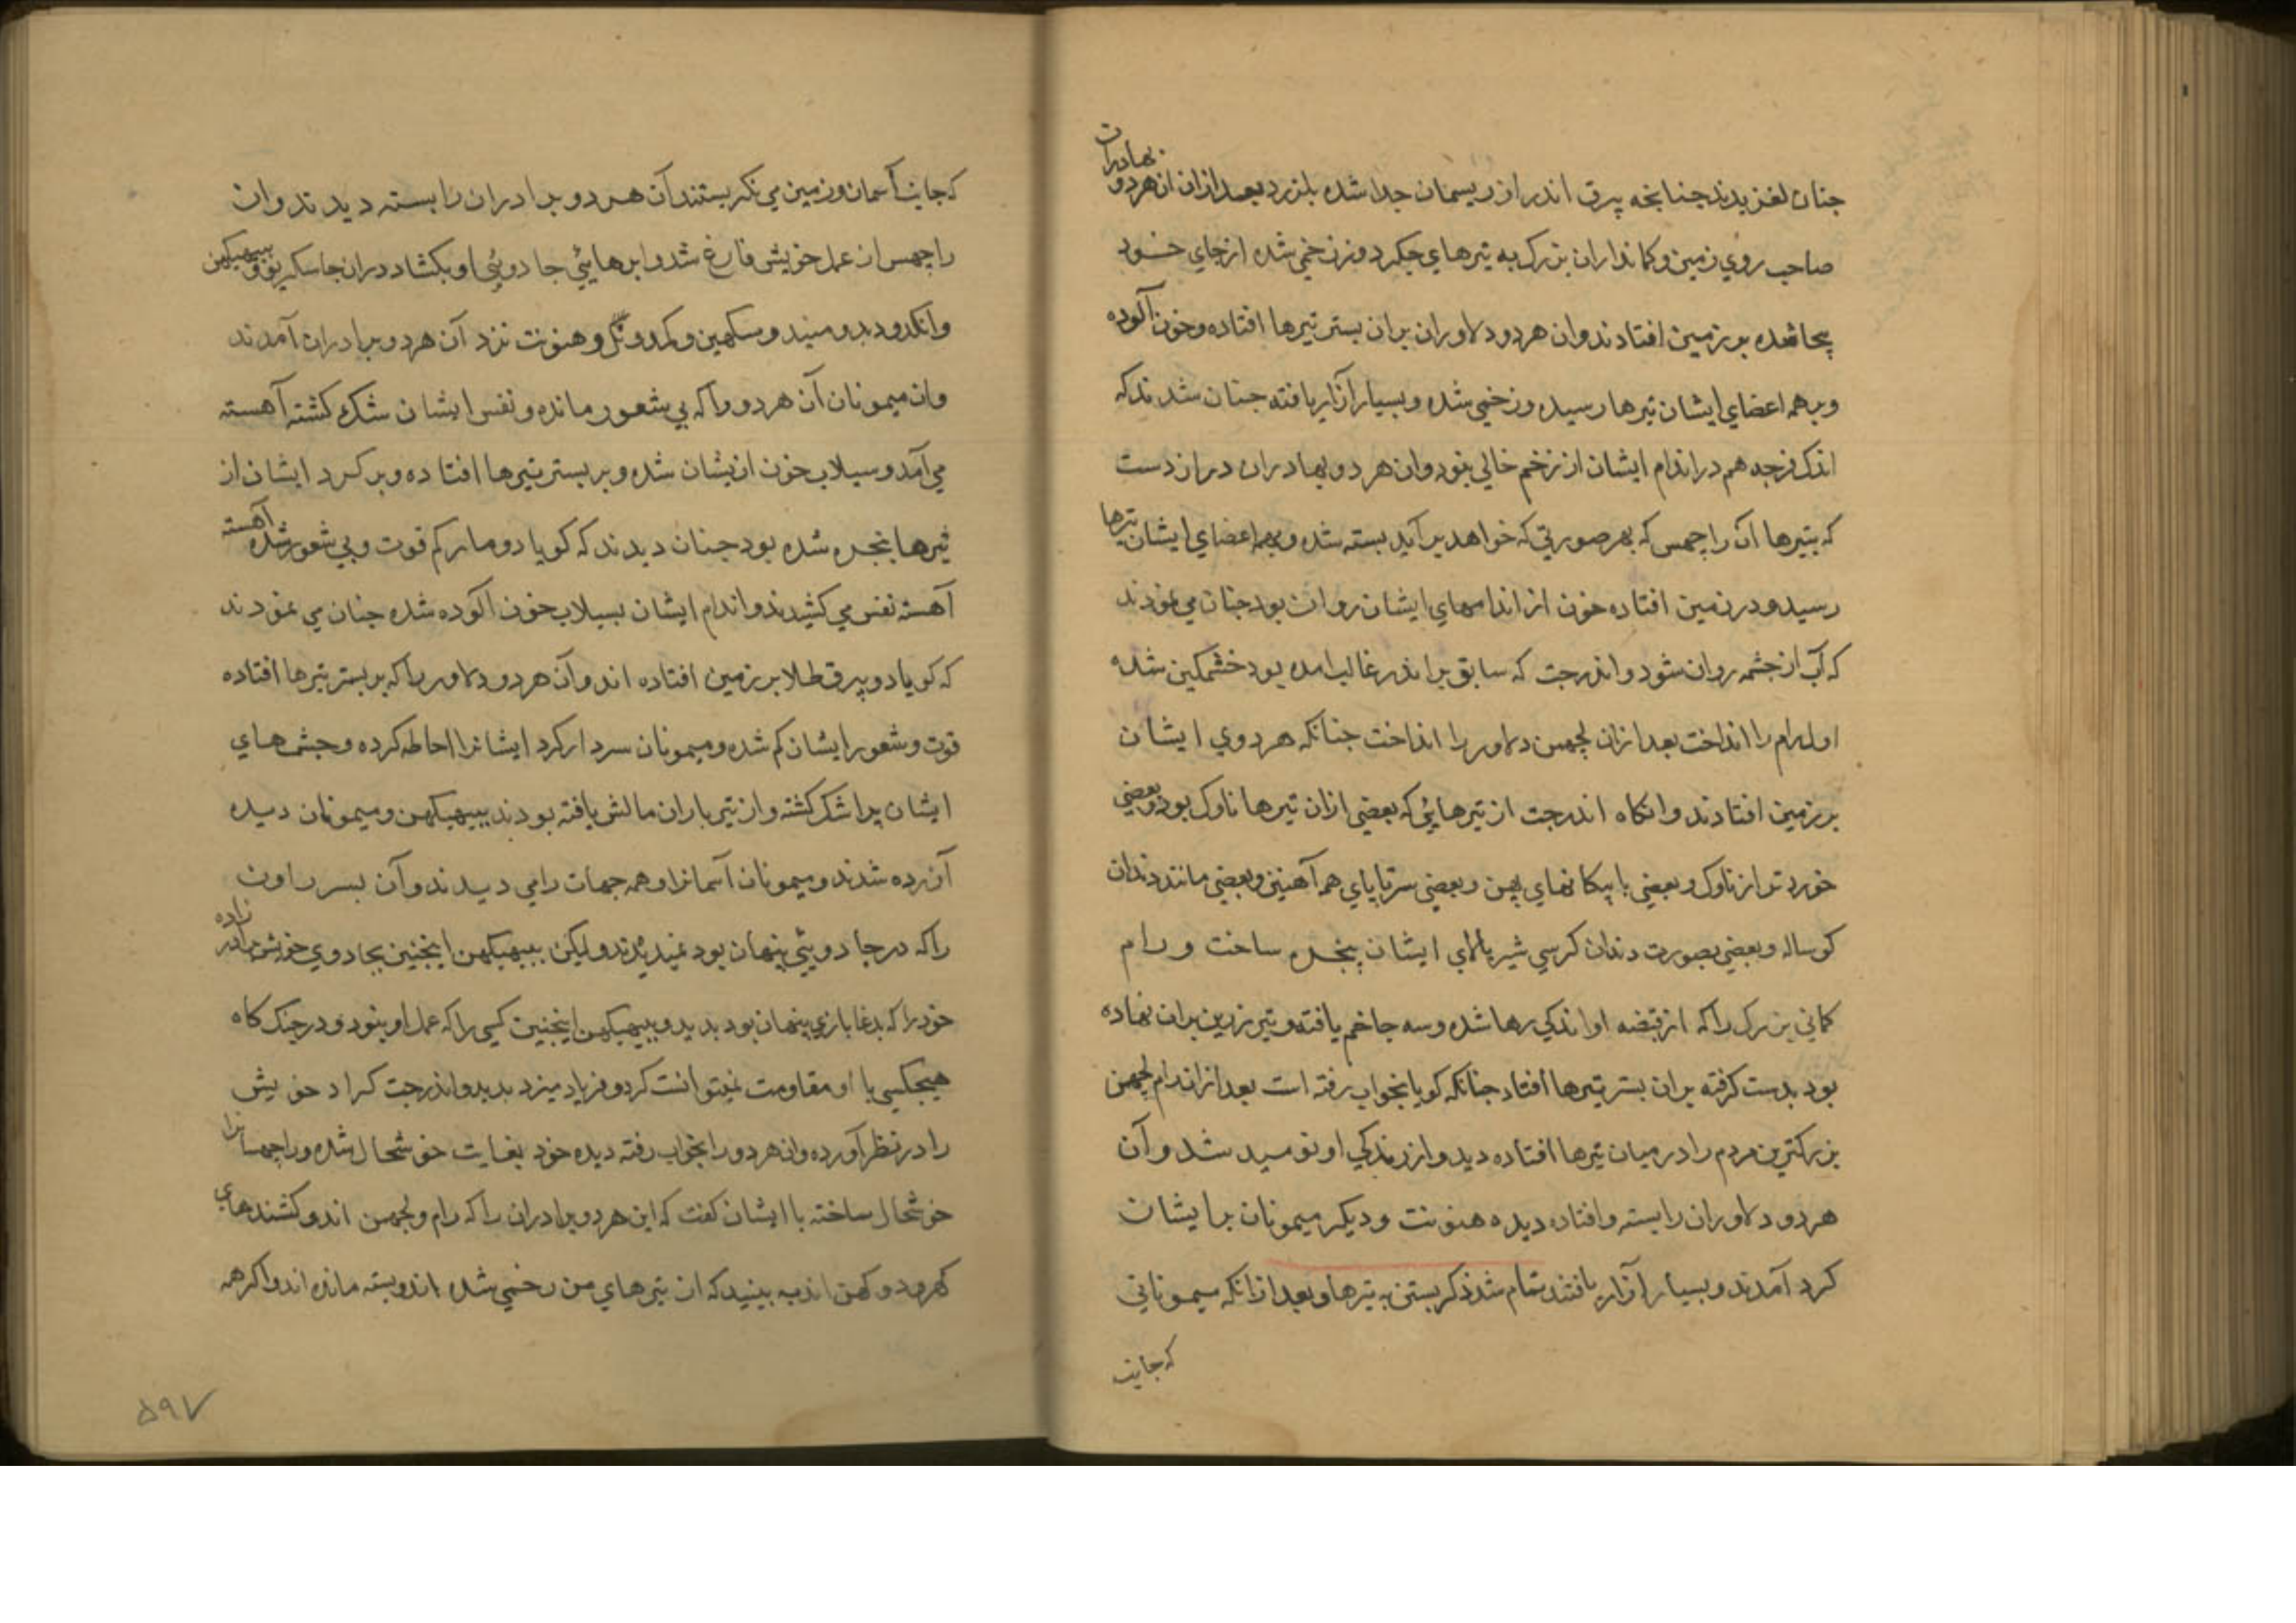 جنان لغزیدند جنانجه بیرق اندر از ریسمان جدا شده بلرزد بعد ازان ان هردو بهادران
صاحب روی زمین و کمانداران بزرک به تیرهای جکردوز زخمی شده از جای خود
بیجا شده بر زمین افتادند وان هردو دلاوران بران بستر تیرها افتاده و خون آلوده
و بر همه اعضای ایشان تیرها رسیده و زخمی شده و بسیار آزار یافته جنان شدند که
اندک فرجه هم در اندام ایشان از زخم خالی نبود وان هردو بهادران دراز دست
که بتیرها آن راجهس که بهر صورتی که خواهد برآید بسته شده و بهمه اعضای ایشان تیرها
رسیده و در زمین افتاده خون از اندامهای ایشان روان بود جنان می نمودند
که آب از جشمه روان شود و اندرجت که سابق بر اندر غالب امده بود خشمکین شده
اول رام را انداخت بعد ازان لجهمن دلاور را انداخت جنانکه هردوی ایشان
بر زمین افتادند وانکاه اندرجت از تیرهایی که بعضی ازان تیرها ناوک بود و بعضی
خورد تر از ناوک و بعضی با پیکانهای پهن و بعضی سر تا پای همه آهنین و بعضی مانند دندان
کوساله و بعضی بصورت دندان کرسی شیر بالای ایشان پنجره ساخت و رام
کمانی بزرک را که از قبضه او اندکی رها شده و سه جا خم یافته و تیر زرین بران نهاده
بود بدست کرفته بران بستر تیرها افتاد جنانکه کویا بخواب رفته است بعد ازان رام لجهمن
بزرکترین مردم را در میان تیرها افتاده دید و از زندکی او نومید شد و آن
هردو دلاوران را بسته و افتاده دیده هنونت و دیکر میمونان بر ایشان
کرد آمدند و بسیار آزار یافتند تمام شد ذکر بستن به تیرها و بعد ازانکه میمونانی
که جانب
که جانب آسمان و زمین می نکریستند آن هردو برادران را بسته دیدند وان
راجهس از عمل خویش فارغ شد و ابرهایی جادویی او بکشاد دران جا سکریو و ببهیکهن
وانکد و دبد و میند و سکهین و کمد و نل و هنونت نزد آن هردو برادران آمدند
وان میمونان آن هردو را که بی شعور مانده و نفس ایشان سُبُک کشته آهسته
می آمد و سیلاب خون ازیشان شده و بر بستر تیرها افتاده و بر کرد ایشان از
تیرها پنجره شده بود جنان دیدند که کویا دو مار کم قوت و بی شعور شده آهسته
آهسته نفس می کشیدند و اندام ایشان بسیلاب خون آلوده شده جنان می نمودند
که کویا دو بیرق طلا بر زمین افتاده اند و آن هردو دلاور را که بر بستر تیرها افتاده
قوت و شعور ایشان کم شده و میمونان سردار کرد ایشانرا احاطه کرده و جشمهای
ایشان پر اشک کشته و از تیر باران مالش یافته بودند ببهیکهن و میمونان دیده
آزرده شدند و میمونان آسمانرا و همه جهات را می دیدند و آن پسر راون
را که در جادویی پنهان بود نمیدیدند و لیکن ببهیکهن اینجنین بجادوی خویش برادر زاده
خود را که بدغا بازی پنهان بود بدید و ببهیکهن اینجنین کسی را که عمل او بنود و در جنک کاه
هیجکسی با او مقاومت نمیتوانست کرد و فریاد میزد بدید و اندرجت کراد خویش
را در نظر آورده وان هردو را بخواب رفته دیده خود بغایت خوشحال شده و راجهسانرا
خوشحال ساخته با ایشان کفت که این هردو برادران را که رام و لجهمن اند و کشندهای
کهر و دوکهن اند به بینید که از تیرهای من زخمی شده اند و بسته مانده اند و اکر همه
۵۹۷